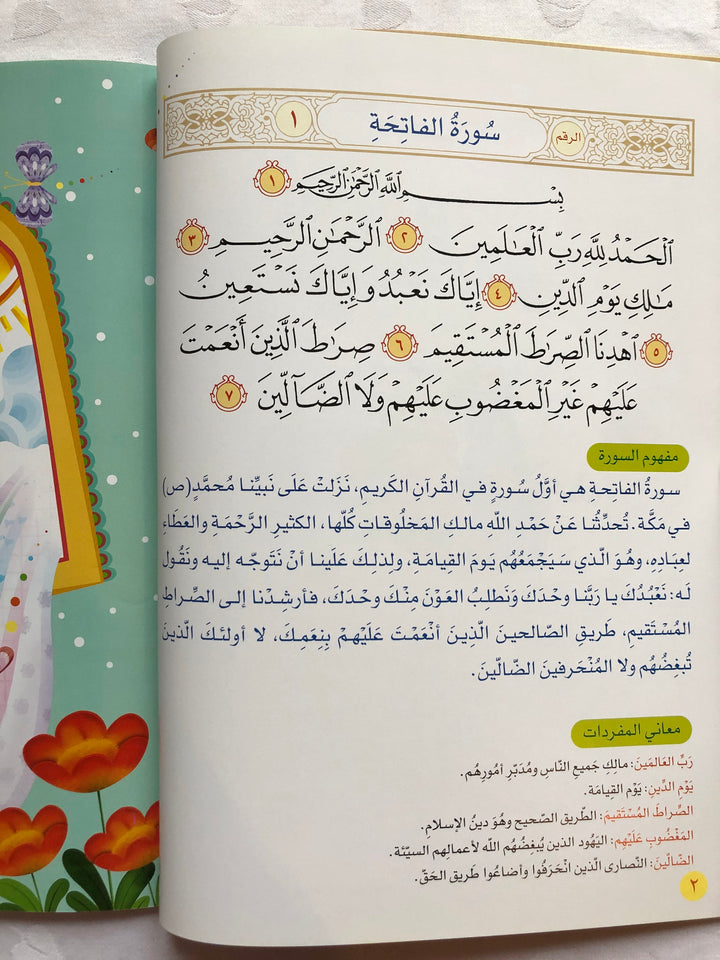 الرقم سُورَةُ الفاتِحَةِ ١
بِسْمِ ٱللَّهِ ٱلرَّحْمَٰنِ ٱلرَّحِيمِ ١
ٱلْحَمْدُ لِلَّهِ رَبِّ ٱلْعَٰلَمِينَ ٢ ٱلرَّحْمَٰنِ ٱلرَّحِيمِ ٣
مَٰلِكِ يَوْمِ ٱلدِّينِ ٤ إِيَّاكَ نَعْبُدُ وَإِيَّاكَ نَسْتَعِينُ
٥ ٱهْدِنَا ٱلصِّرَٰطَ ٱلْمُسْتَقِيمَ ٦ صِرَٰطَ ٱلَّذِينَ أَنْعَمْتَ
عَلَيْهِمْ غَيْرِ ٱلْمَغْضُوبِ عَلَيْهِمْ وَلَا ٱلضَّآلِّينَ ٧
مفهوم السورة
سورةُ الفاتحةِ هي أوَّلُ سُورةٍ في القُرآنِ الكَريمِ، نَزَلَتْ عَلَى نَبيِّنا مُحمَّدٍ (ص)
في مَكَّة. تُحدِّثُنا عَنْ حَمْدِ اللّهِ مالكِ المَخلُوقاتِ كُلّها، الكثيرِ الرَّحْمَةِ والعَطَاءِ
لعِبادِهِ، وهُوَ الّذي سَيَجْمَعُهُم يَومَ القِيامَة، ولذلكَ عَلَينا أنْ نَتَوجّه إليه ونَقُول
لَه: نَعْبُدُكَ يا رَبَّنا وحْدَكَ ونَطلبُ العَوْنَ مِنْكَ وحْدَكَ، فأرشِدْنا إلى الصِّراطِ
المُسْتَقيمِ، طَريقِ الصّالحينَ الَّذِينَ أنْعَمْتَ عَلَيْهمْ بِنِعَمِكَ، لا أولئكَ الّذينَ
تُبغِضُهُم ولا المُنْحَرفينَ الضّالّينَ.
معاني المفردات
رَبِّ العَالمَينَ: مالكِ جَميعِ النّاسِ ومُدَبِّرِ أمُورِهُم.
يَوْمِ الدِّينِ: يَوْم القِيامَة.
الصِّراطَ المُسْتَقيمَ: الطّريق الصّحيح وهُوَ دينُ الإسلامِ.
المَغْضُوبِ عَلَيْهِم: اليَهُود الذين يُبغِضُهُم اللّه لأعمالِهم السيّئة.
الضّالّينَ: النّصارى الّذين انْحَرَفُوا وأضاعُوا طَريق الحَقّ.
٢